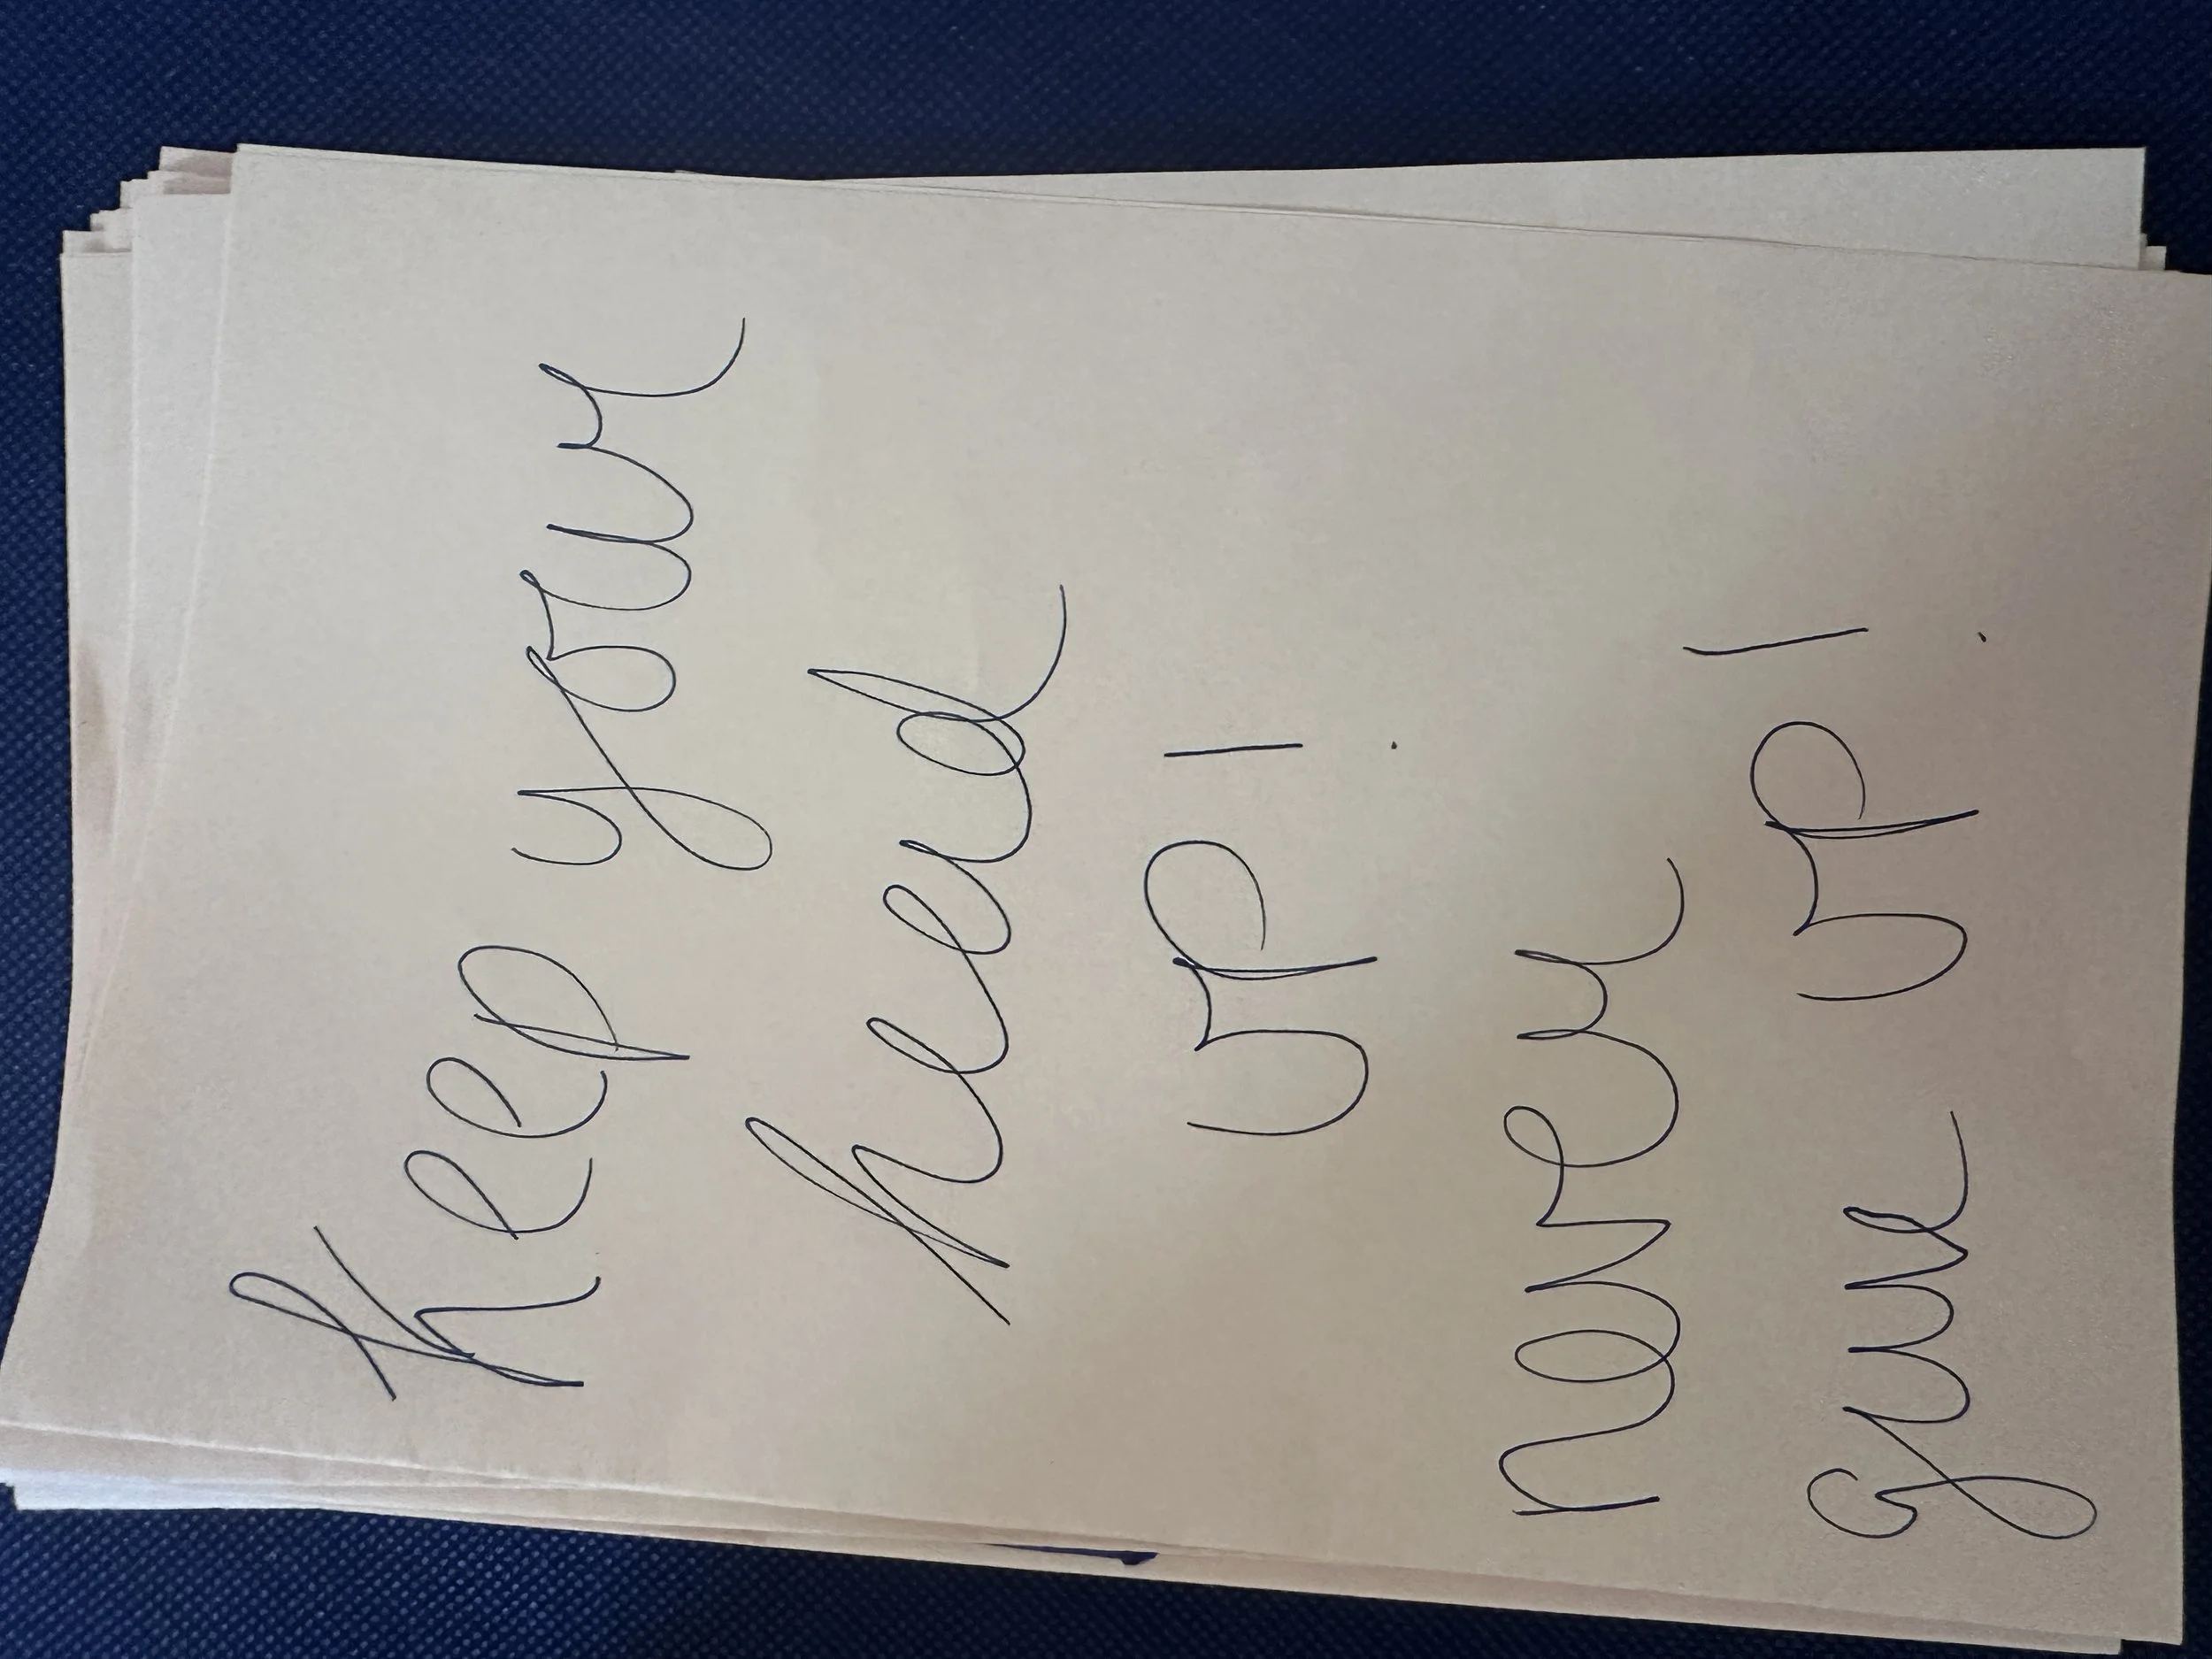 Keep your
head
up!
never
give up!